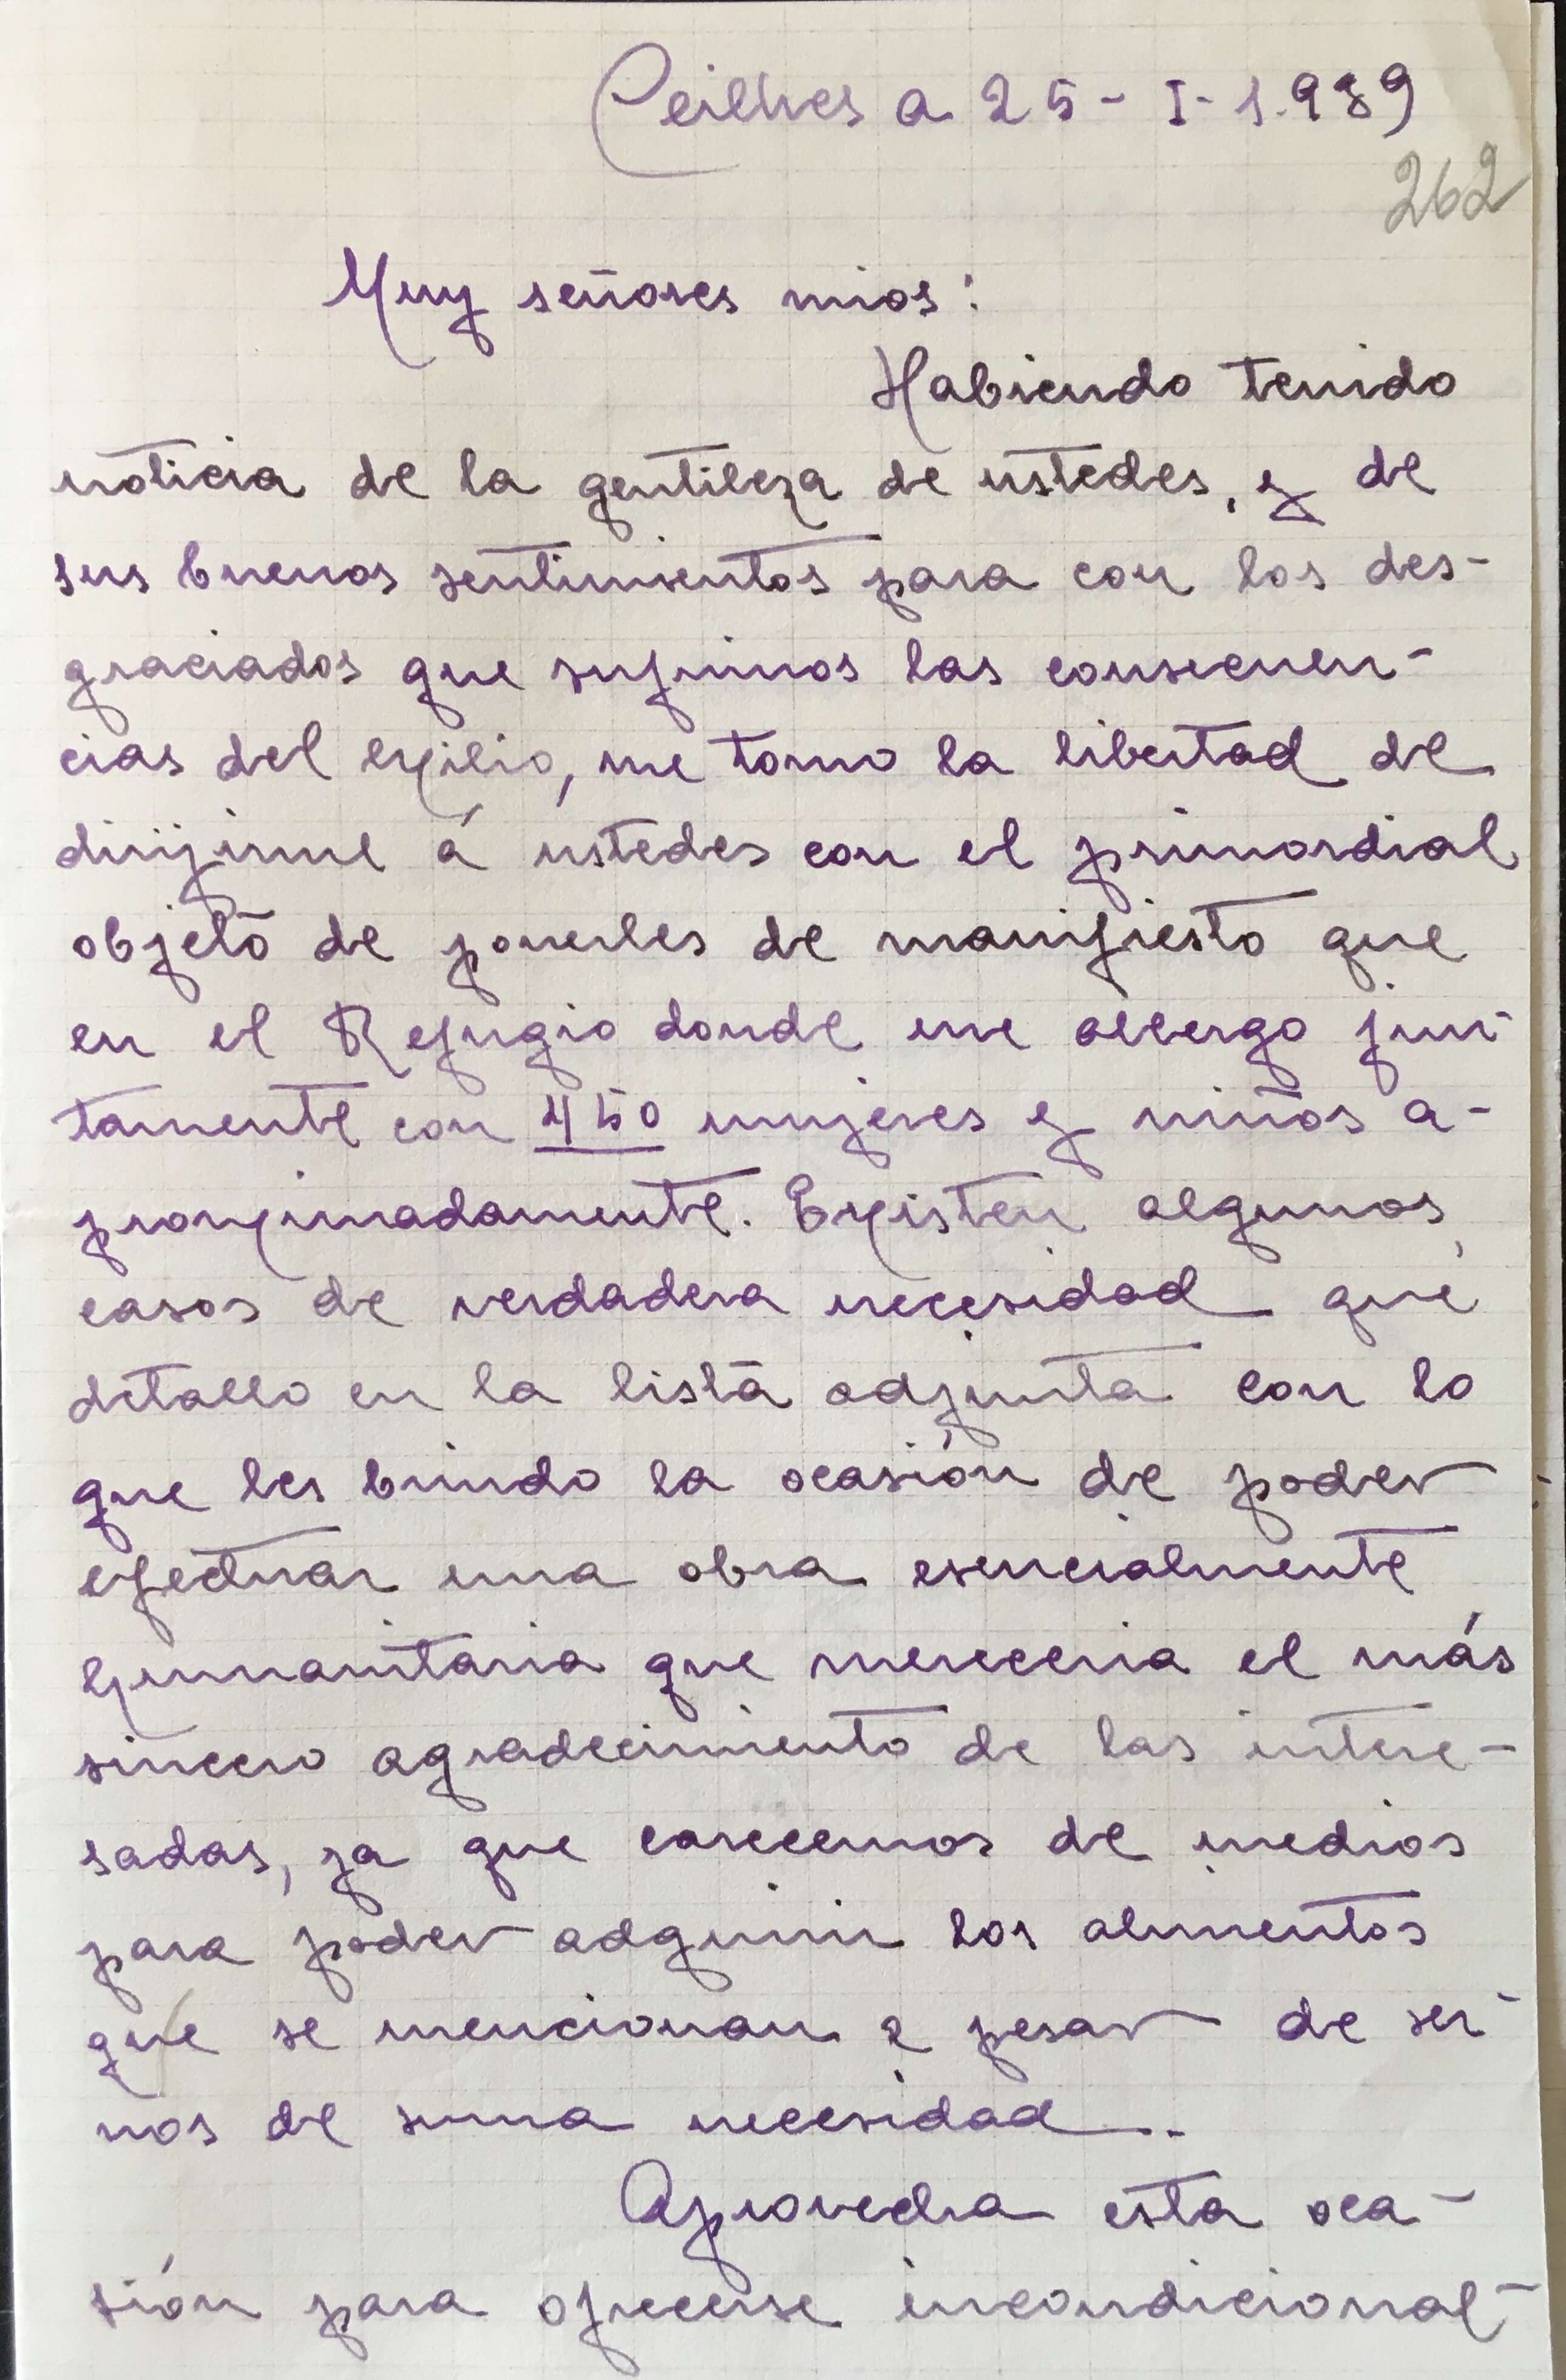 Ceilhes a 25 - I - 1.939
262
Muy señores mios:
Habiendo tenido
noticia de la gentileza de ustedes, y de
sus buenos sentimientos para con los des-
graciados que sufrimos las consecuen-
cias del exilio, me tomo la libertad de
dirijirme á ustedes con el primordial
objeto de ponerles de manifiesto que
en el Refugio donde me albergo jun-
tamente con 450 mujeres y niños a-
proximadamente. Existen algunos
casos de verdadera necesidad que
detallo en la lista adjunta con lo
que les brindo la ocasión de poder
efectuar una obra esencialmente
humanitaria que mereceria el más
sincero agradecimiento de las intere-
sadas, ya que carecemos de medios
para poder adquirir los alimentos
que se mencionan a pesar de ser-
nos de suma necesidad.-
Aprovecha esta oca-
sión para ofrecerse incondicional-